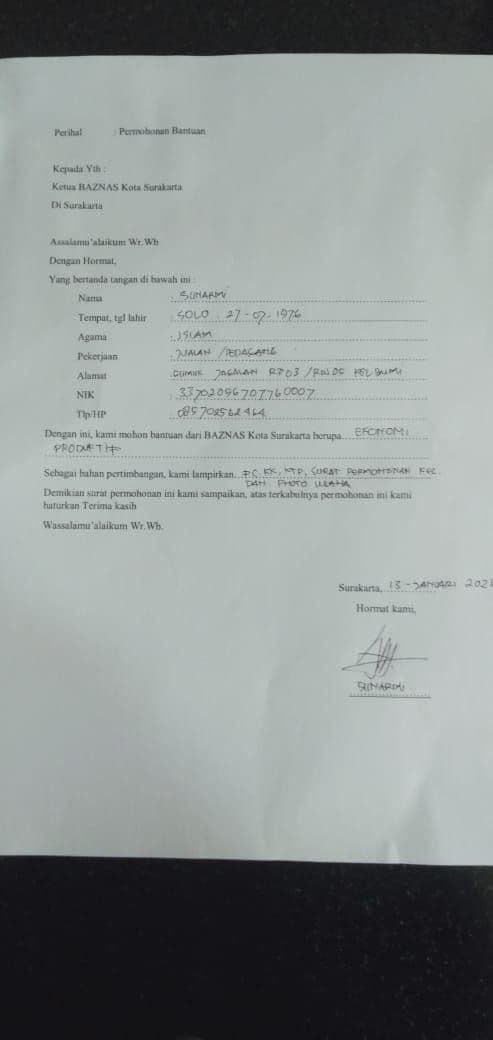 Perihal : Permohonan Bantuan
Kepada Yth :
Ketua BAZNAS Kota Surakarta
Di Surakarta
Assalamu'alaikum Wr.Wb
Dengan Hormat,
Yang bertanda tangan di bawah ini :
Nama : SUNARMI
Tempat, tgl lahir : SOLO. 27-07-1976
Agama : ISLAM
Pekerjaan : JUALAN /PEDAGANG
Alamat : RT03 /RW05 KEL BUMI
NIK : 3372026707760007
Tlp/HP : 085702562464
Dengan ini, kami mohon bantuan dari BAZNAS Kota Surakarta berupa EKONOMI
PRODUKTIF
Sebagai bahan pertimbangan, kami lampirkan. F.C. KK, KTP, SURAT PERMOHONAN
DAN PHOTO USAHA
Demikian surat permohonan ini kami sampaikan, atas terkabulnya permohonan ini kami
haturkan Terima kasih
Wassalamu'alaikum Wr.Wb.
Surakarta, 13 -JANUARI
Hormat kami,
SUNARMI